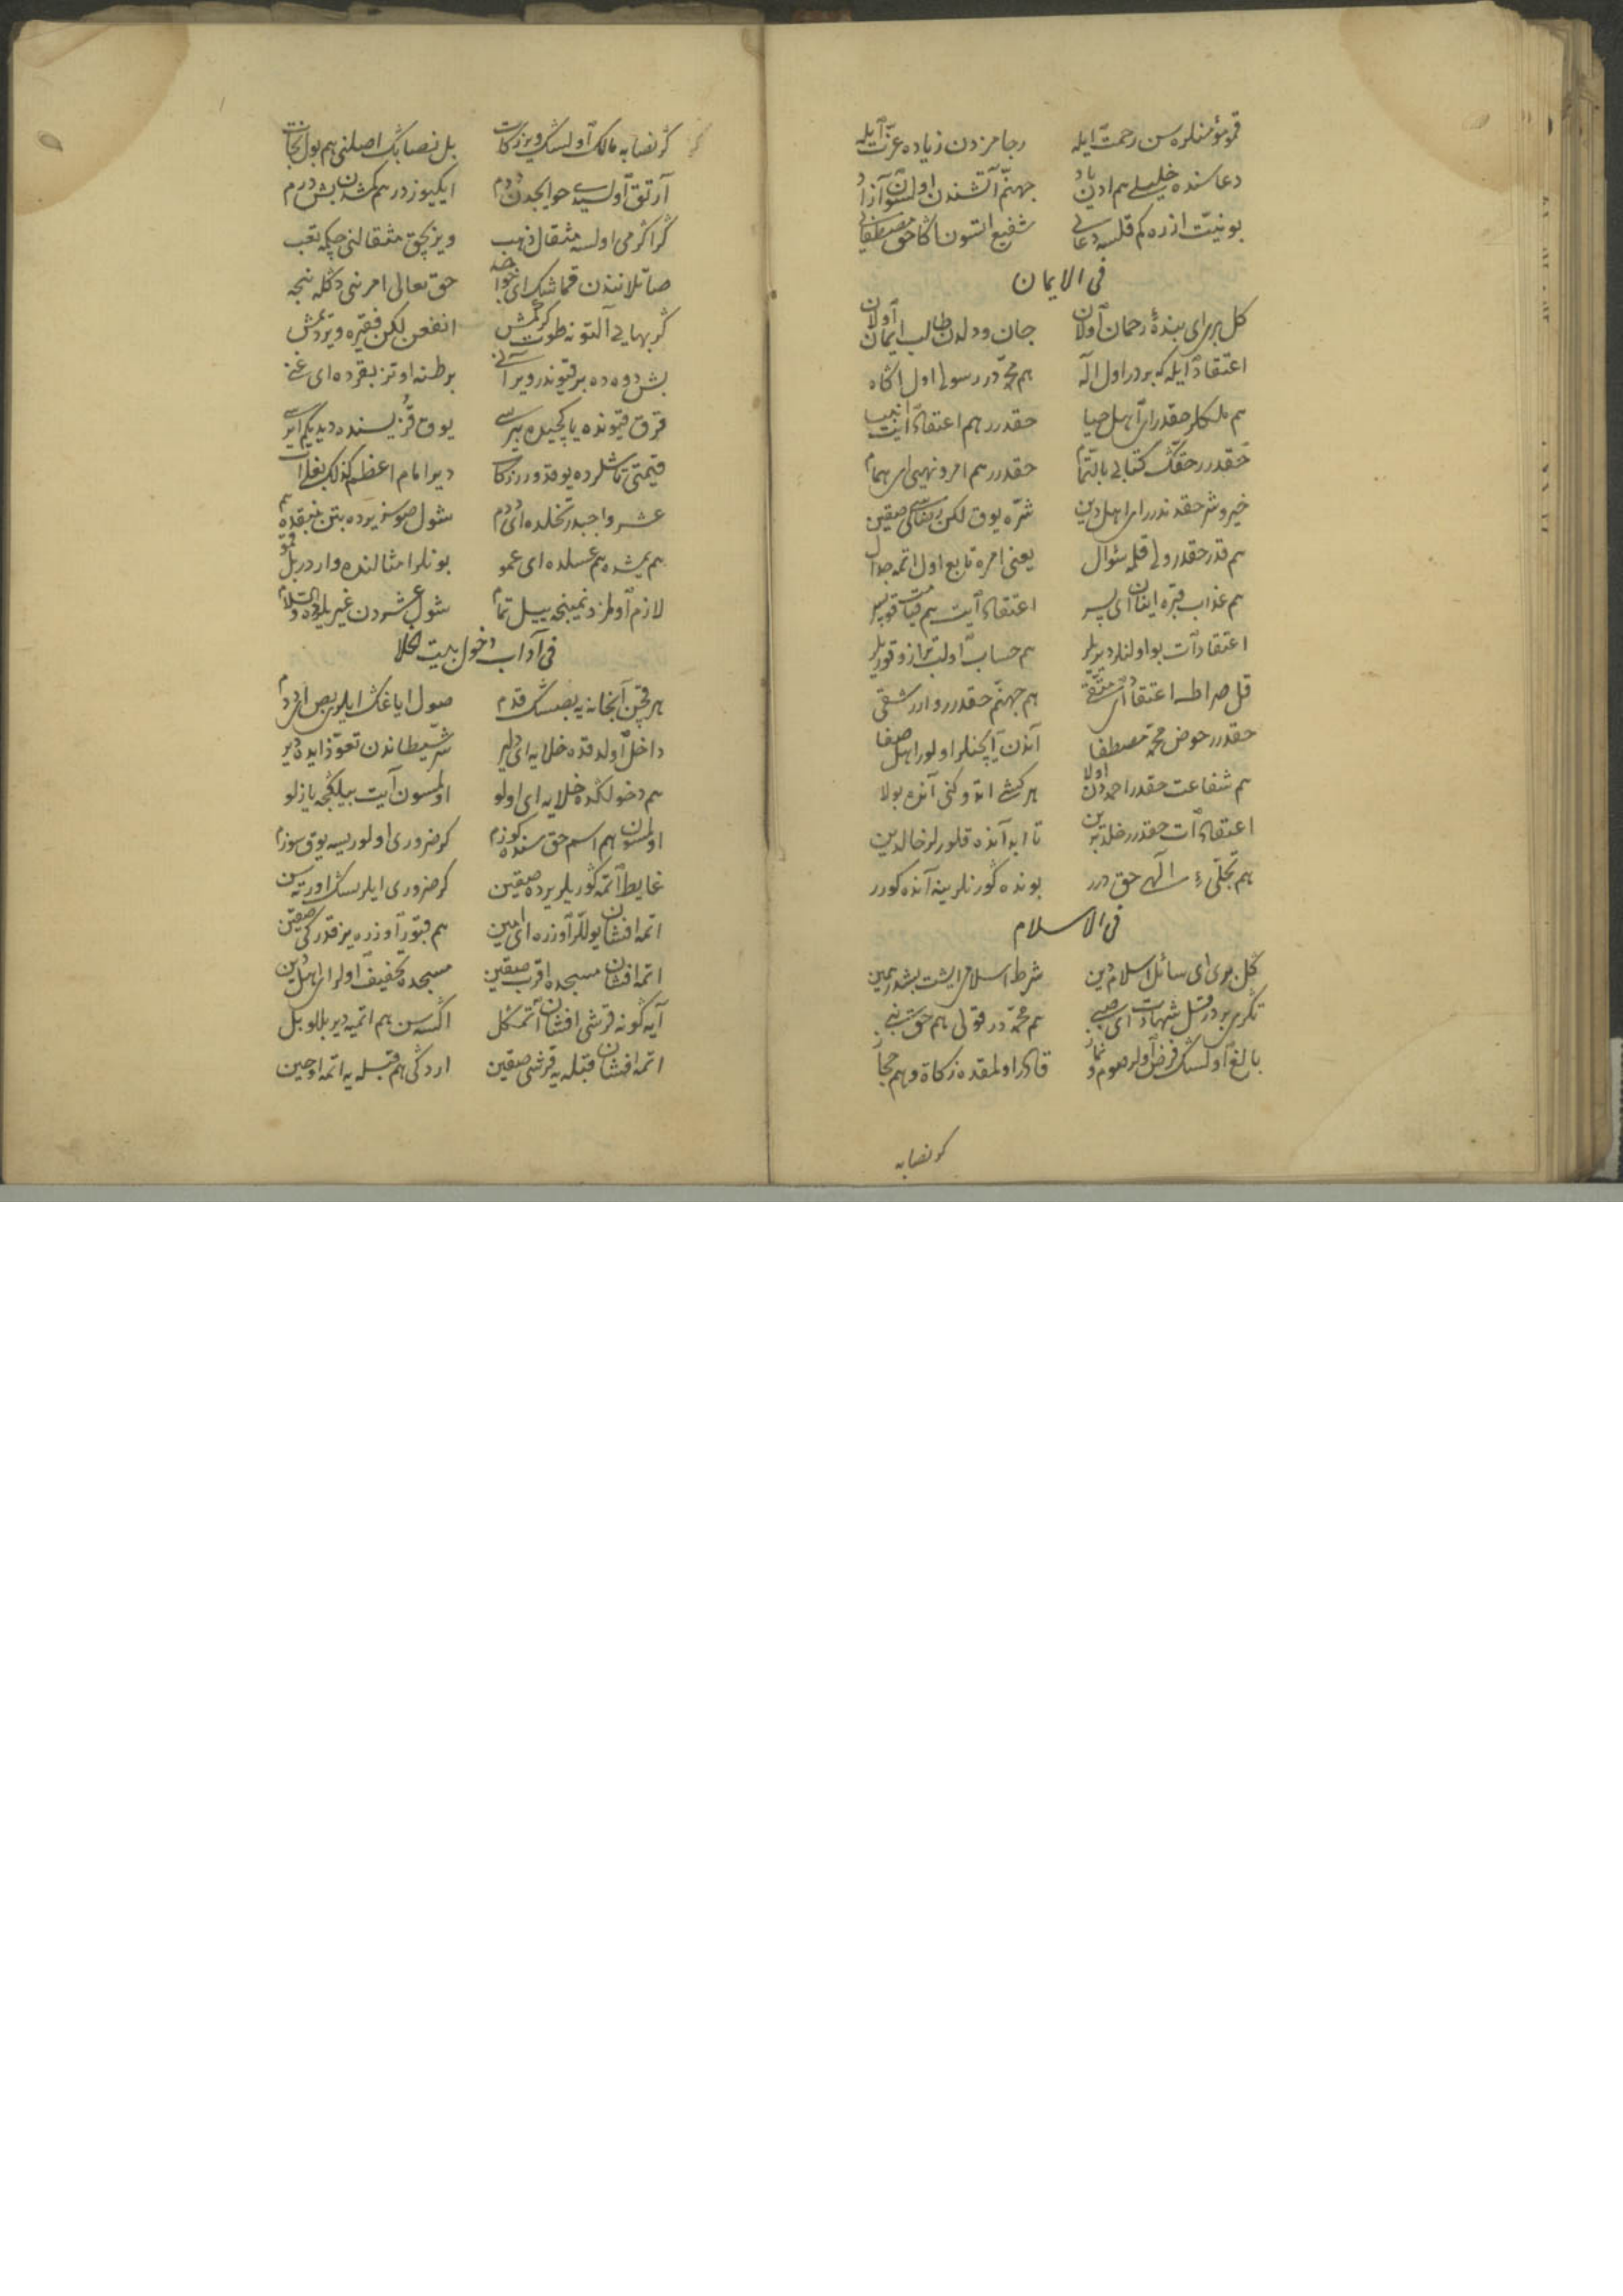 قمو مؤمنلره سن رحمت ایله رجامزدن زیاده عزت ایله
دعاسنده خلیلی هم ادین یاد جهنم آتشندن اولسون آزاد
بو نیت ازره کم قلسه دعایی شفیع اتسون اکا حق مصطفایی
فی الایمان
کل بری ای بندۀ رحمان اولان جان ودلدن طالب ایمان اولان
اعتقاد ایله که بردر اول اله هم محمد در رسولی اول اکاه
هم ملکلر حقدر ای اهل حیا حقدرر هم اعتقاد ایت انبیا
حقدرر حقک کتابی بالتمام حقدرر هم امر ونهیی ای همام
خیر وشر حقدندرر ای اهل دین شره یوق لکن رضاسی صقین
هم قدر حقدر ولی قلمه سؤال یعنی امره تابع اول اتمه جدال
هم عذاب قبره ایقان ای پسر اعتقاد ایت هم قیامت قوپیسر
اعتقاد ات بو اولنلر دیریلر هم حساب اولب ترازو قوریلر
قل صراطه اعتقاد ای متقی هم جهنم حقدرر وارر شقی
حقدرر حوض محمد مصطفا آندن آیچنلر اولور اهل صفا
هم شفاعت حقدر احمددن اولا هر کشی اتدوکنی آنده بولا
اعتقاد ات حقدرر خلد برین تا ابد آنده قلورلر خالدین
هم تجلیء الهی حق درر بونده کورنلر ینه آنده کورر
فی الاسلام
کل بری ای سائل اسلام دین شرط اسلام ایشت بشدر همین
تکری بردر قل شهادت ای صبی هم محمد در قولی هم حق نبی
بالغ اولسک فرض اولر صوم و نماز قادر اولمقده زکاة وهم حجاز
کر نصابه
کر نصابه مالک اولسک ویر زکات بل نصابک اصلنی هم بول نجات
آرتق اولسیدی حوایجدن ددم ایکیوز درهم کشدن بش درم
کر اکرمی اولسه مثقال ذهب ویر بچق مثقالنی چکمه تعب
صاتلانندن قماشک ای خواجه حق تعالی امرنی دکله نجه
کر بهایی آلتونه طوت کر کمش انفعن لکن فقیره ویر دمش
بش دوه ده بر قیوندر ویر آنی برطنه اوتز بقرده ای غنی
قرق قیونده یا کچیده بیریسی یوق قزیسنده دیدیکم ایریسی
قیمتی تاشلرده یوقدورر زکات دیر امام اعظم کذلک بغل ات
عشر واجبدر نخلده ای ددم شول صوسز یرده بتن بنبقده هم
هم یمشده هم عسلده ای عمو بونلر امثالنده واردر بل قمو
لازم اولمز دنمینجه بیل تمام شول عشردن غیریلرده والسلام
فی آداب دخول بیت الخلا
هر قچن آبخانه یه بصسک قدم صول ایاغک ایلری بص ای ددم
داخل اولدقده خلایه ای دلیر شر شیطاندن تعوذ ایده دیر
هم دخولکده خلایه ای اولو اولمسون آیت بیلکجه یازلو
اولمسون هم اسم حق سنده کوزم کر ضروری اولوریسه یوق سوزم
غایط اتمه کوریلر یرده صقین کر ضروری ایلرسک اورته سن
اتمه افشان یوللر اوزره ای امین هم قپو اوزره یز قدر کی صقین
اتمه افشان مسجده اقرب صقین مسجده تخفیف اولر ای اهل دین
آیه کونه قرشی افشان اتمه کل اکسه سن هم اتمیه دیر بللو بل
اتمه افشان قبله یه قرشی صقین اردکی هم قبله یه اتمه اوحین